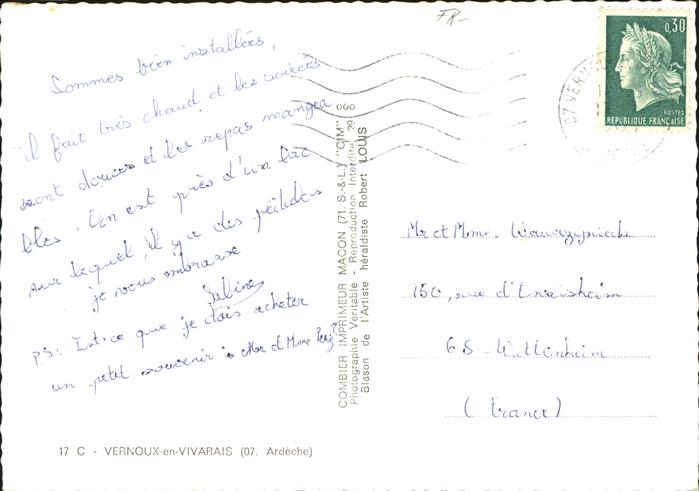 FR-
Sommes bien installées,
il fait très chaud et les soirées
sont douces et les repas mangea
bles. On est près d'un lac
sur lequel il y a des pédalos
je vous embrasse
Sabine
PS: Est-ce que je dois acheter
un petit souvenir à Mr et Mme
17 C - VERNOUX-en-VIVARAIS (07. Ardèche)
COMBIER IMPRIMEUR MACON (71. S.-&-L.) "CIM"
Photographie Véritable - Reproduction Interdite 29
Blason de l'Artiste héraldiste Robert LOUIS
000
0,30
POSTES
REPUBLIQUE FRANÇAISE
07 VERNOUX
Mr et Mme
150, rue d'Ensisheim
68 - Wittenheim
(France)